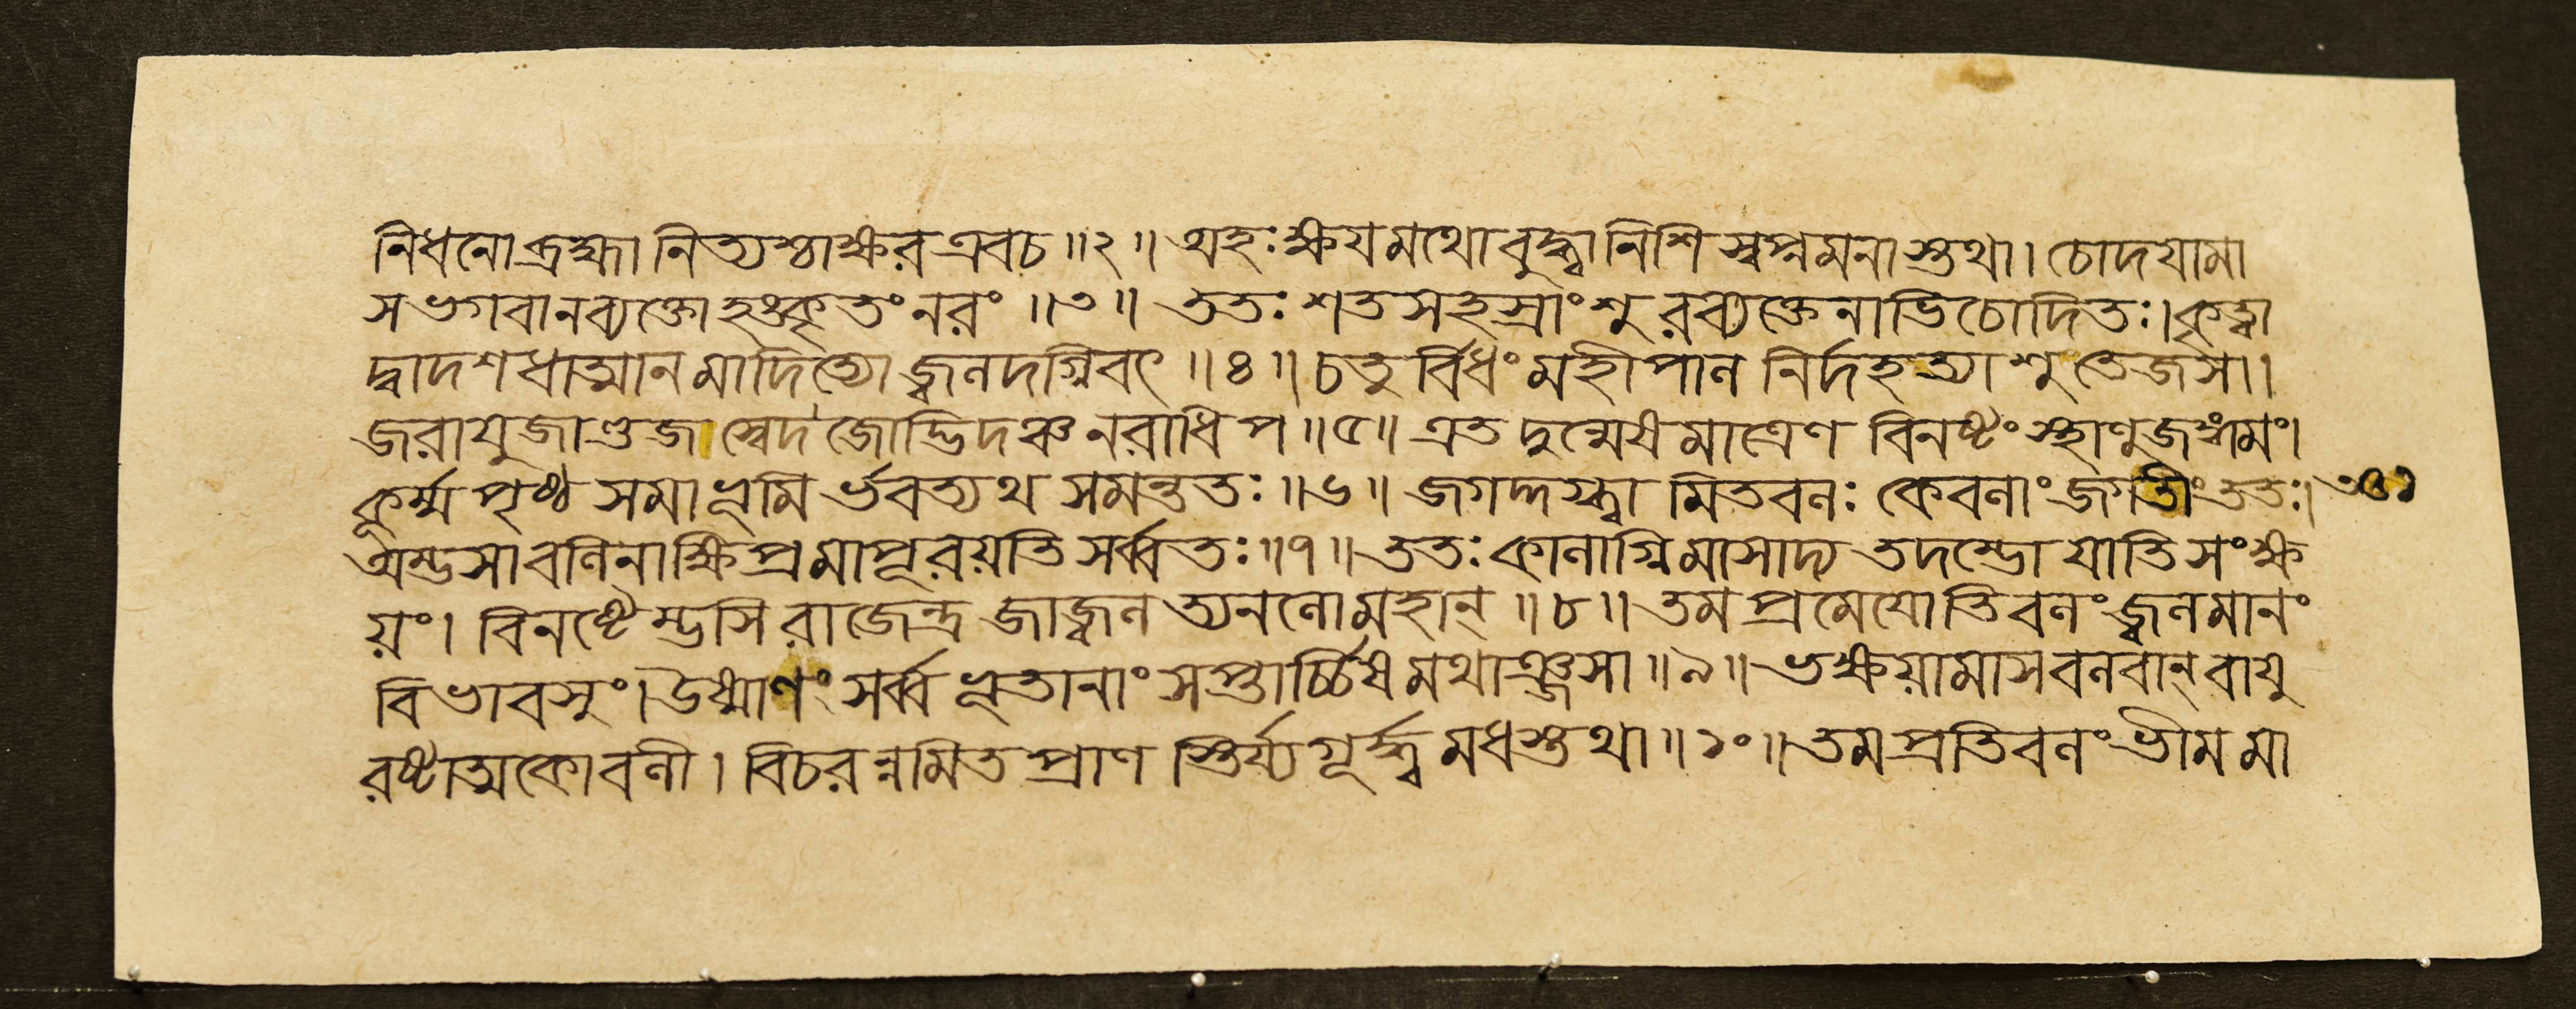 নিধনো ব্রহ্মা নিত্যশ্চাক্ষর এবচ ॥২॥ অহঃক্ষয়মথো বুদ্ধ্বা নিশি স্বপ্নমনাস্তথা। চোদযামা
স ভগবানব্যক্তোহঙ্কৃতংনরং ॥৩॥ ততঃ শতসহস্রাংশুরব্যক্তেনাভিচোদিতঃ। কৃত্বা
দ্বাদশধাত্মানমাদিত্যো জ্বলদগ্নিবৎ ॥৪॥ চতুর্বিধং মহীপাল নির্দহত্যাশু তেজসা।
জরাযুজাণ্ডজাস্বেদজোদ্ভিদঞ্চ নরাধিপ ॥৫॥ এতদুন্মেষমাত্রেণ বিনষ্টং স্থাণুজঙ্গমং।
কূর্ম্মপৃষ্ঠসমা ভূমির্ভবত্যথ সমন্ততঃ ॥৬॥ জগদ্দগ্ধ্বামিতবলঃ কেবলাং জগতীং ততঃ।
অম্ভসাবলিনা ক্ষিপ্রমাপূরয়তি সর্ব্বতঃ ॥৭॥ ততঃ কালাগ্নিমাসাদ্য তদম্ভো যাতি সংক্ষ
য়ং। বিনষ্টেম্ভসি রাজেন্দ্র জাজ্বলত্যনলো মহান্ ॥৮॥ তমপ্রমেযোতিবলং জ্বলমানং
বিভাবসুং। উষ্মাণং সর্ব্বভূতানাং সপ্তার্চ্চিষমথাঞ্জসা ॥৯॥ ভক্ষয়ামাস বলবান্ বাযু
রষ্টাত্মকো বলী। বিচরন্নমিতপ্রাণস্তির্য্যগূর্দ্ধ্বমধস্তথা ॥১০॥ তমপ্রতিবলং ভীমমা